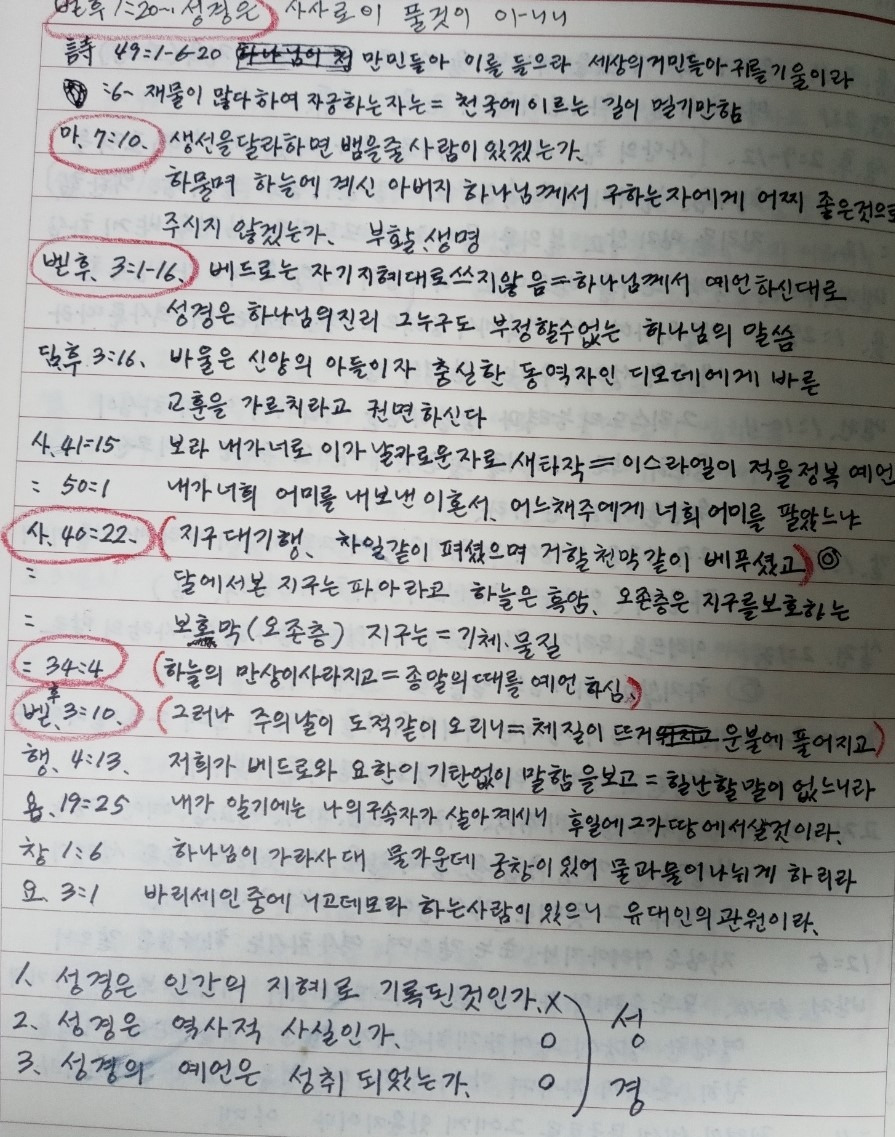 벧후 1=20~ 성경은 사사로이 풀것이 아니니
詩 49=1-6-20 만민들아 이를 들으라 세상의거민들아 귀를기울이라
:6~ 재물이 많다하여 자긍하는자는= 천국에 이르는 길이 멀기만함
마. 7=10. 생선을달라하면 뱀을줄 사람이 있겠는가.
하물며 하늘에 계신 아버지 하나님께서 구하는자에게 어찌 좋은것으로
주시지 않겠는가. 부활.생명
벧후. 3=1-16. 베드로는 자기지혜대로쓰지않음=하나님께서 예언하신대로
성경은 하나님의진리 그누구도 부정할수없는 하나님의 말씀
딤후 3=16. 바울은 신앙의 아들이자 충실한 동역자인 디모데에게 바른
교훈을 가르치라고 권면하신다
사. 41=15 보라 내가너로 이가 날카로운자로 새타작=이스라엘이 적을정복 예언
= 50=1 내가너희 어미를 내보낸 이혼서. 어느채주에게 너희 어미를 팔았느냐
사. 40=22. (지구대기행. 차일같이 펴셨으며 거할천막같이 베푸셨고) ◎
= 달에서본 지구는 파아라고 하늘은 흑암. 오존층은 지구를보호하는
= 보호막(오존층) 지구는=기체.물질
= 34=4 (하늘의 만상이사라지고=종말의때를 예언하심.)
벧후. 3=10. (그러나 주의날이 도적같이 오리니=체질이 뜨거운불에 풀어지고)
행. 4=13. 저희가 베드로와 요한이 기탄없이 말함을보고= 힐난할말이 없느니라
욥. 19=25 내가 알기에는 나의구속자가 살아계시니 후일에그가땅에서살것이라.
창 1=6 하나님이 가라사대 물가운데 궁창이 있어 물과물이나뉘게 하리라
요. 3=1 바리세인중에 니고데모라 하는사람이 있으니 유대인의관원이라.
1. 성경은 인간의 지혜로 기록된것인가. X
2. 성경은 역사적 사실인가. O
3. 성경의 예언은 성취 되었는가. O
성
경